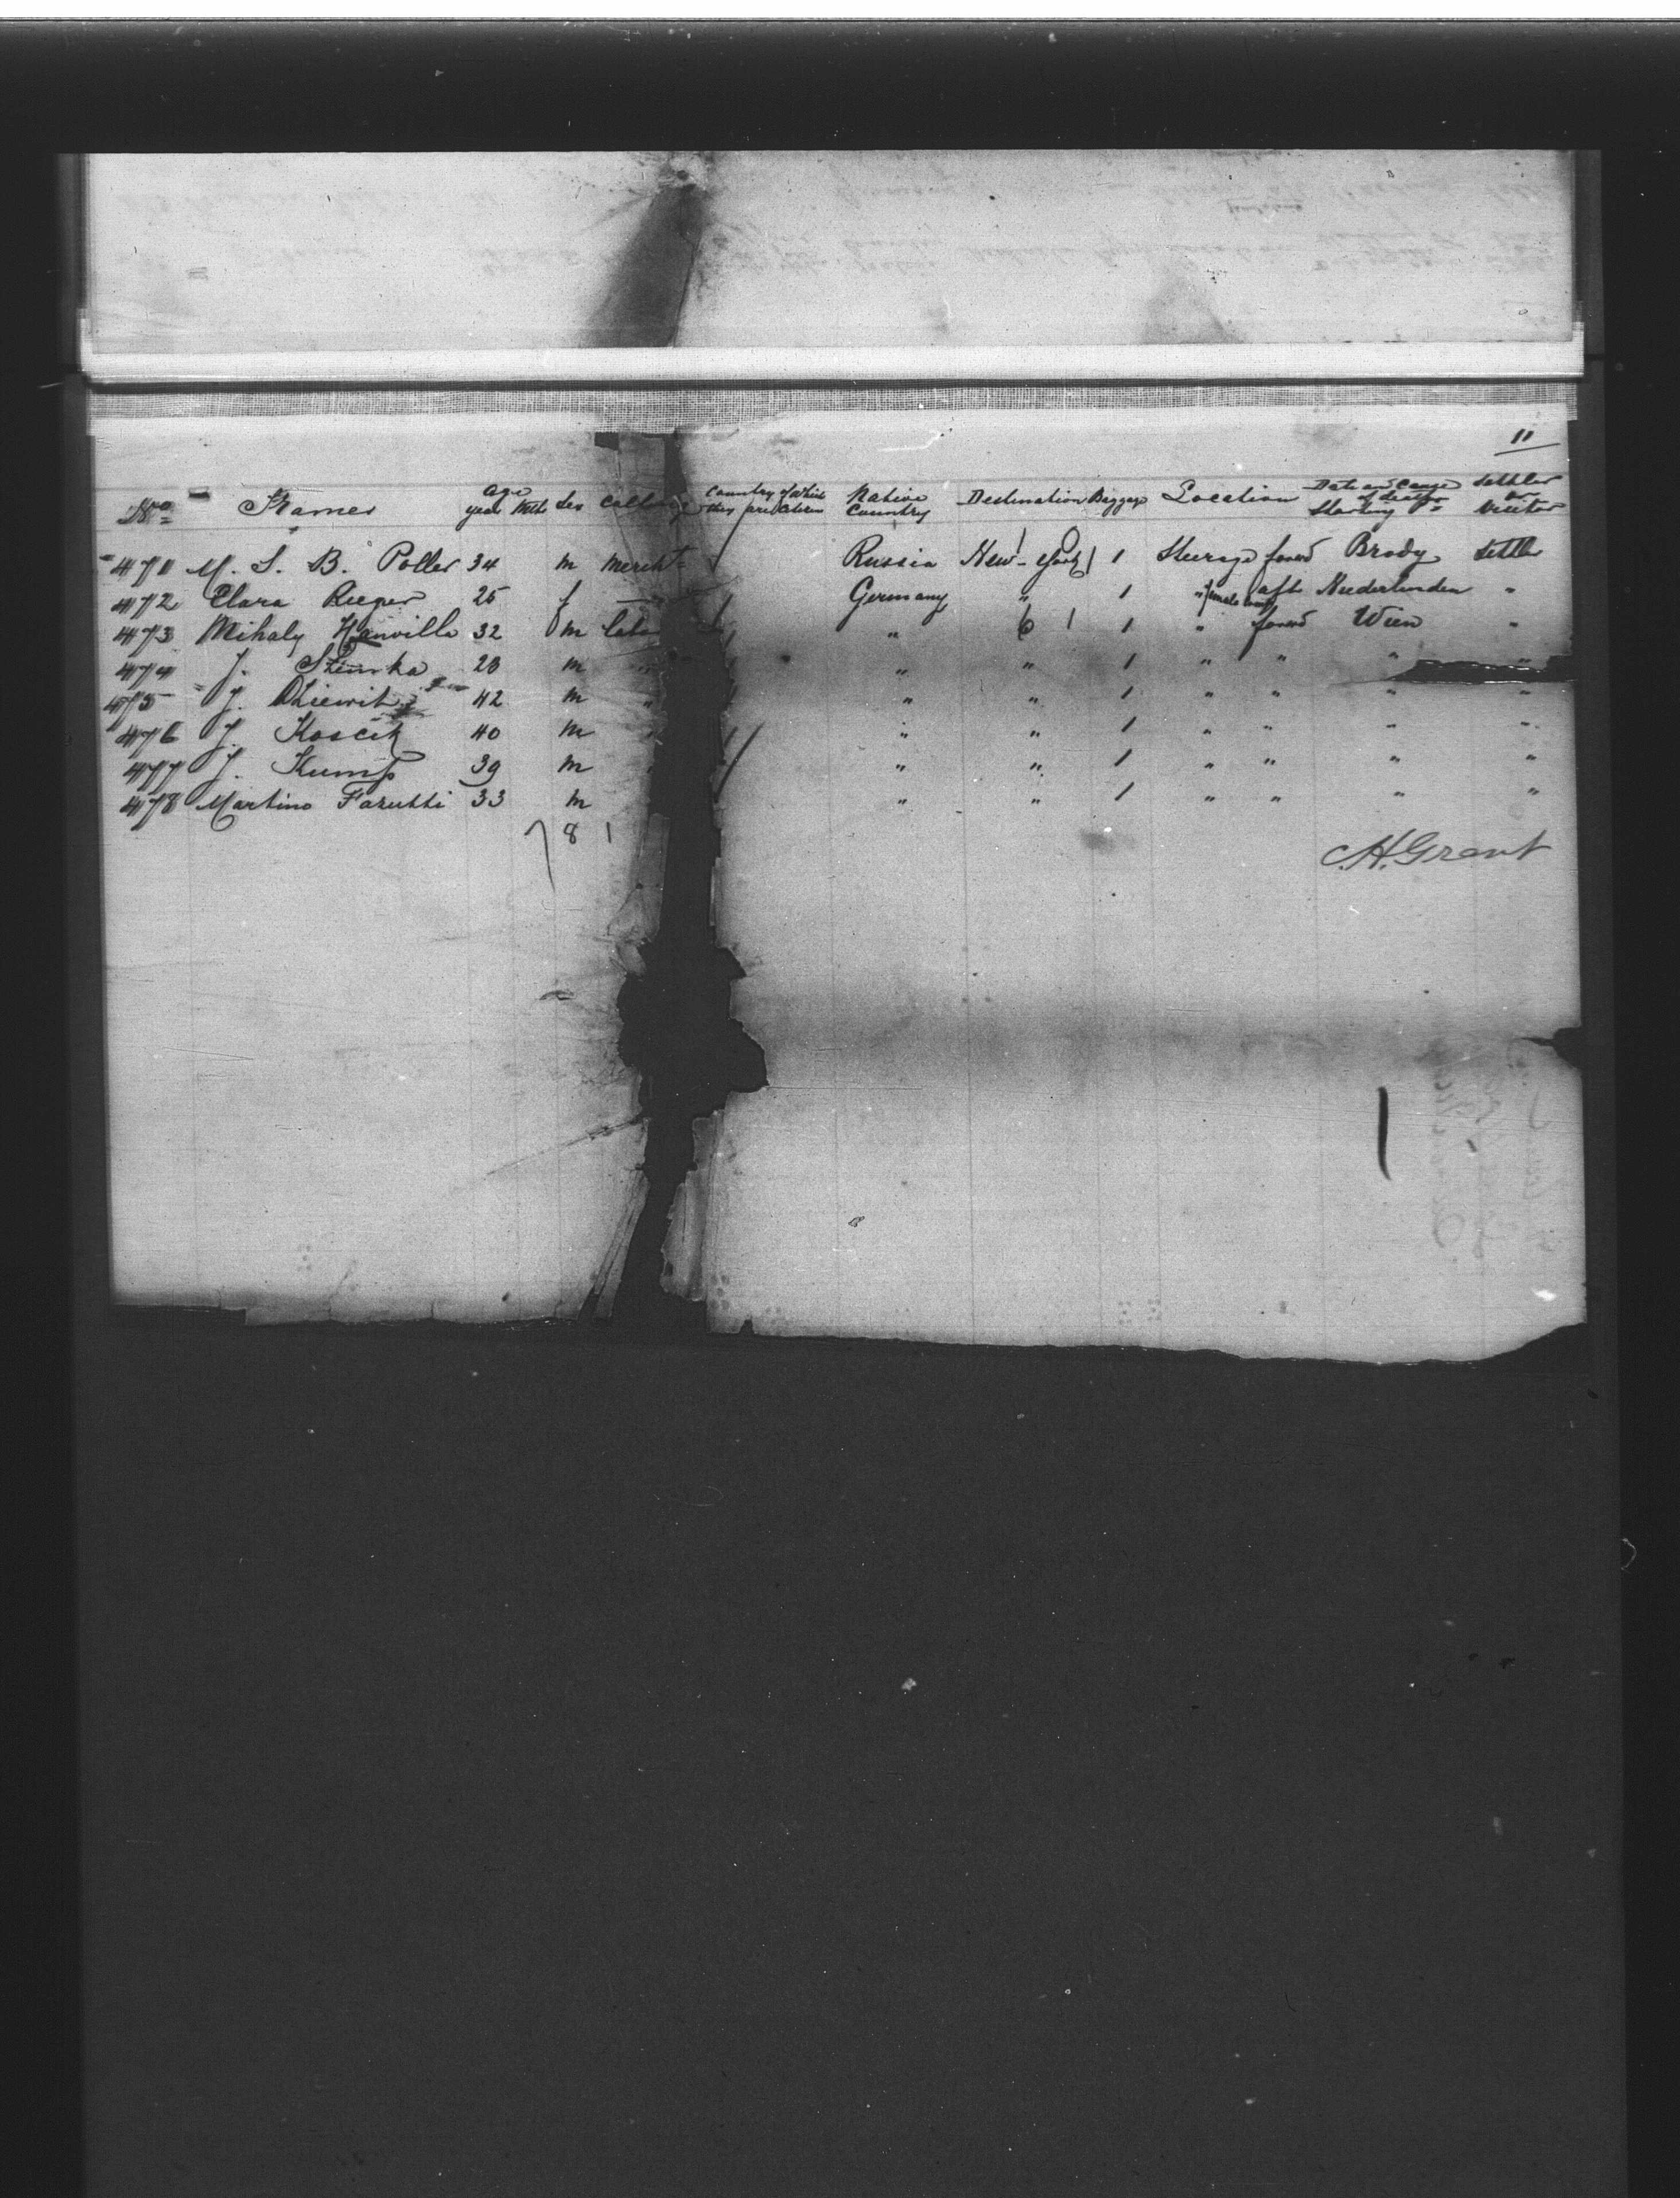 11
No. Names age year Mths Sex Calling Country of which they are Citizens Native Country Destination Baggage Location Date and Cause of Death Starting Settler or Visitor
471 M. S. B. Poller 34 m Mercht Russia New-York 1 Steerage forwd Brody Settler
472 Clara Rieger 25 f — Germany " 1 " aft Niederlanden "
473 Mihaly 32 m Labo " " 1 " forwd Wien "
474 J. 28 m " " " 1 " " " "
475 J. 42 m " " " 1 " " " "
476 J. Koscik 40 m " " " 1 " " " "
477 J. Kump 39 m " " " 1 " " " "
478 Martino Farutti 33 m " " 1 " " " "
7 8 1
A. Grant